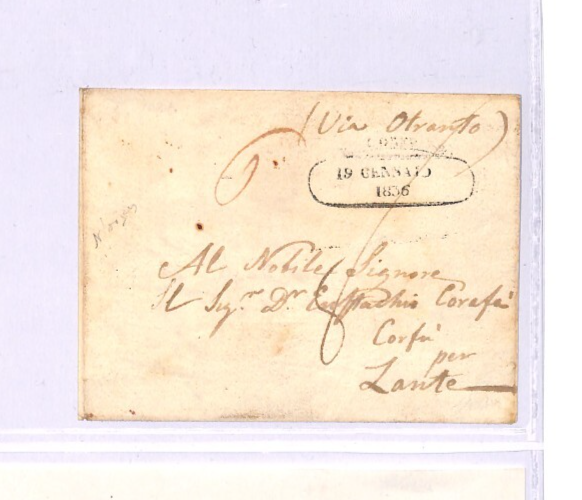 (Via Otranto)
19 GENNAIO
1836
Al Nobile Signore
Il Sigr. Dr. Eustachio Corafà
Corfù
per
Zante